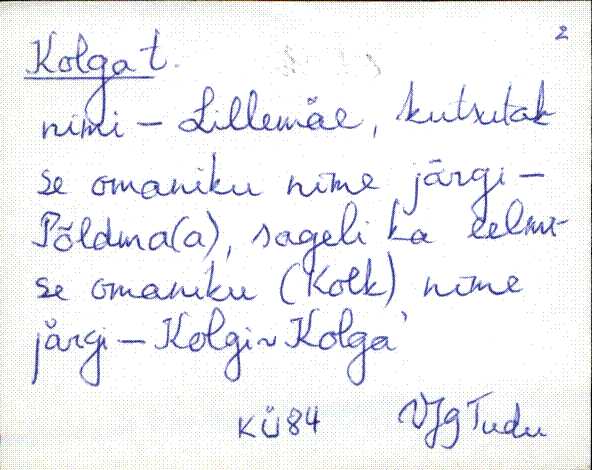 2
Kolga t.
nimi – Lillemäe, kutsutak
se omaniku nime järgi –
Põldma(a), sageli ka eelmi-
se omaniku (Kolk) nime
järgi – Kolgi ~ Kolga`
KÜ84 VJg Tudu